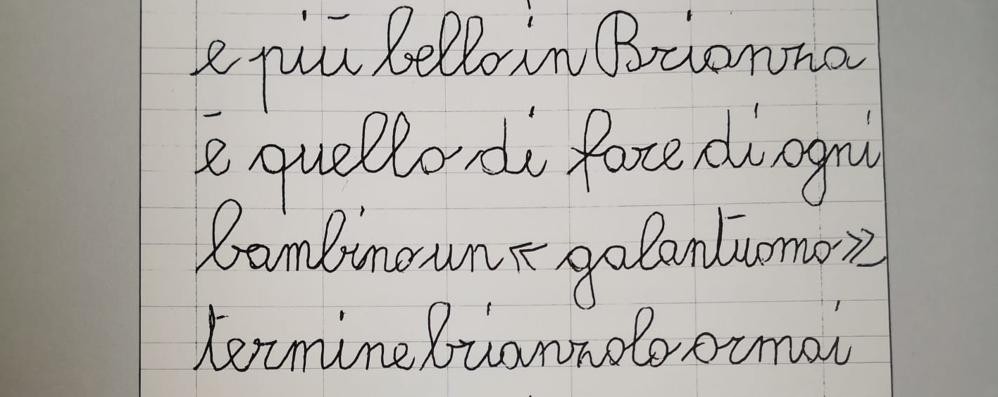 e più bello in Brianza
è quello di fare di ogni
bambino un « galantuomo »
termine brianzolo ormai